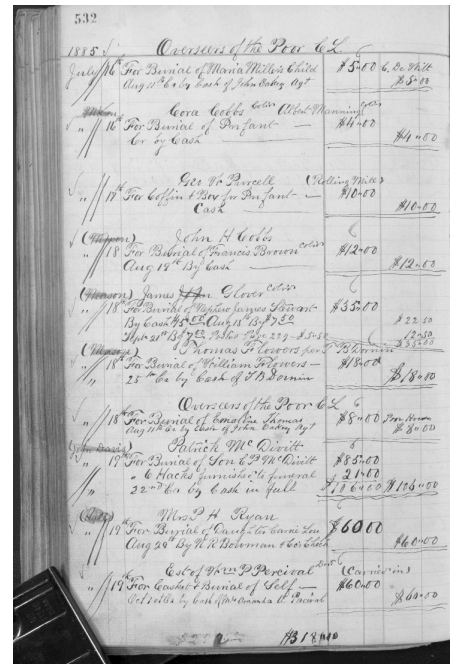 532
1885 Overseers of the Poor C L
July 16th For Burial of Maria Miller's Child $5.00 C. De Witt
Aug 11th Cr by Cash of John Oakey Agt $5.00
Cora Cobbs Color Albert Manning
" 16th For Burial of Infant — $4.00
Cr by Cash — $4.00
Geo W Purcell (Rolling Mill)
" 17th For Coffin & Box for Infant — $10.00
Cash — $10.00
John H Cobbs
" 18 For Burial of Francis Brown Color $12.00
Aug 19th By Cash — $12.00
James Glover Color
" 18th For Burial of Nephew James Stewart $35.00
By Cash Aug 15th By $7.50 $22.50
Sept 21st By 12.50
$35.00
Thomas Flowers per T B Dornin
" 18th For Burial of William Flowers — $18.00
25th Cr by Cash of T B Dornin $18.00
Overseers of the Poor C L
" 18th For Burial of Thomas $8.00 Poor House
Aug 11th Cr by Cash of John Oakey Agt $8.00
Patrick Mc Divitt
" 19th For Burial of Son Mc Divitt $85.00
" 6 Hacks furnished to funeral 21.00
" 22nd Cr by Cash in full $106.00 $106.00
Mrs P H Ryan
" 19th For Burial of Daughter Carrie Lou $60.00
Aug 29th By N R Bowman & Co's Check $60.00
Est of Wm P Percival (Carried in)
" 19th For Casket & Burial of Self — $60.00
by Cash of Mrs Amanda Percival $60.00